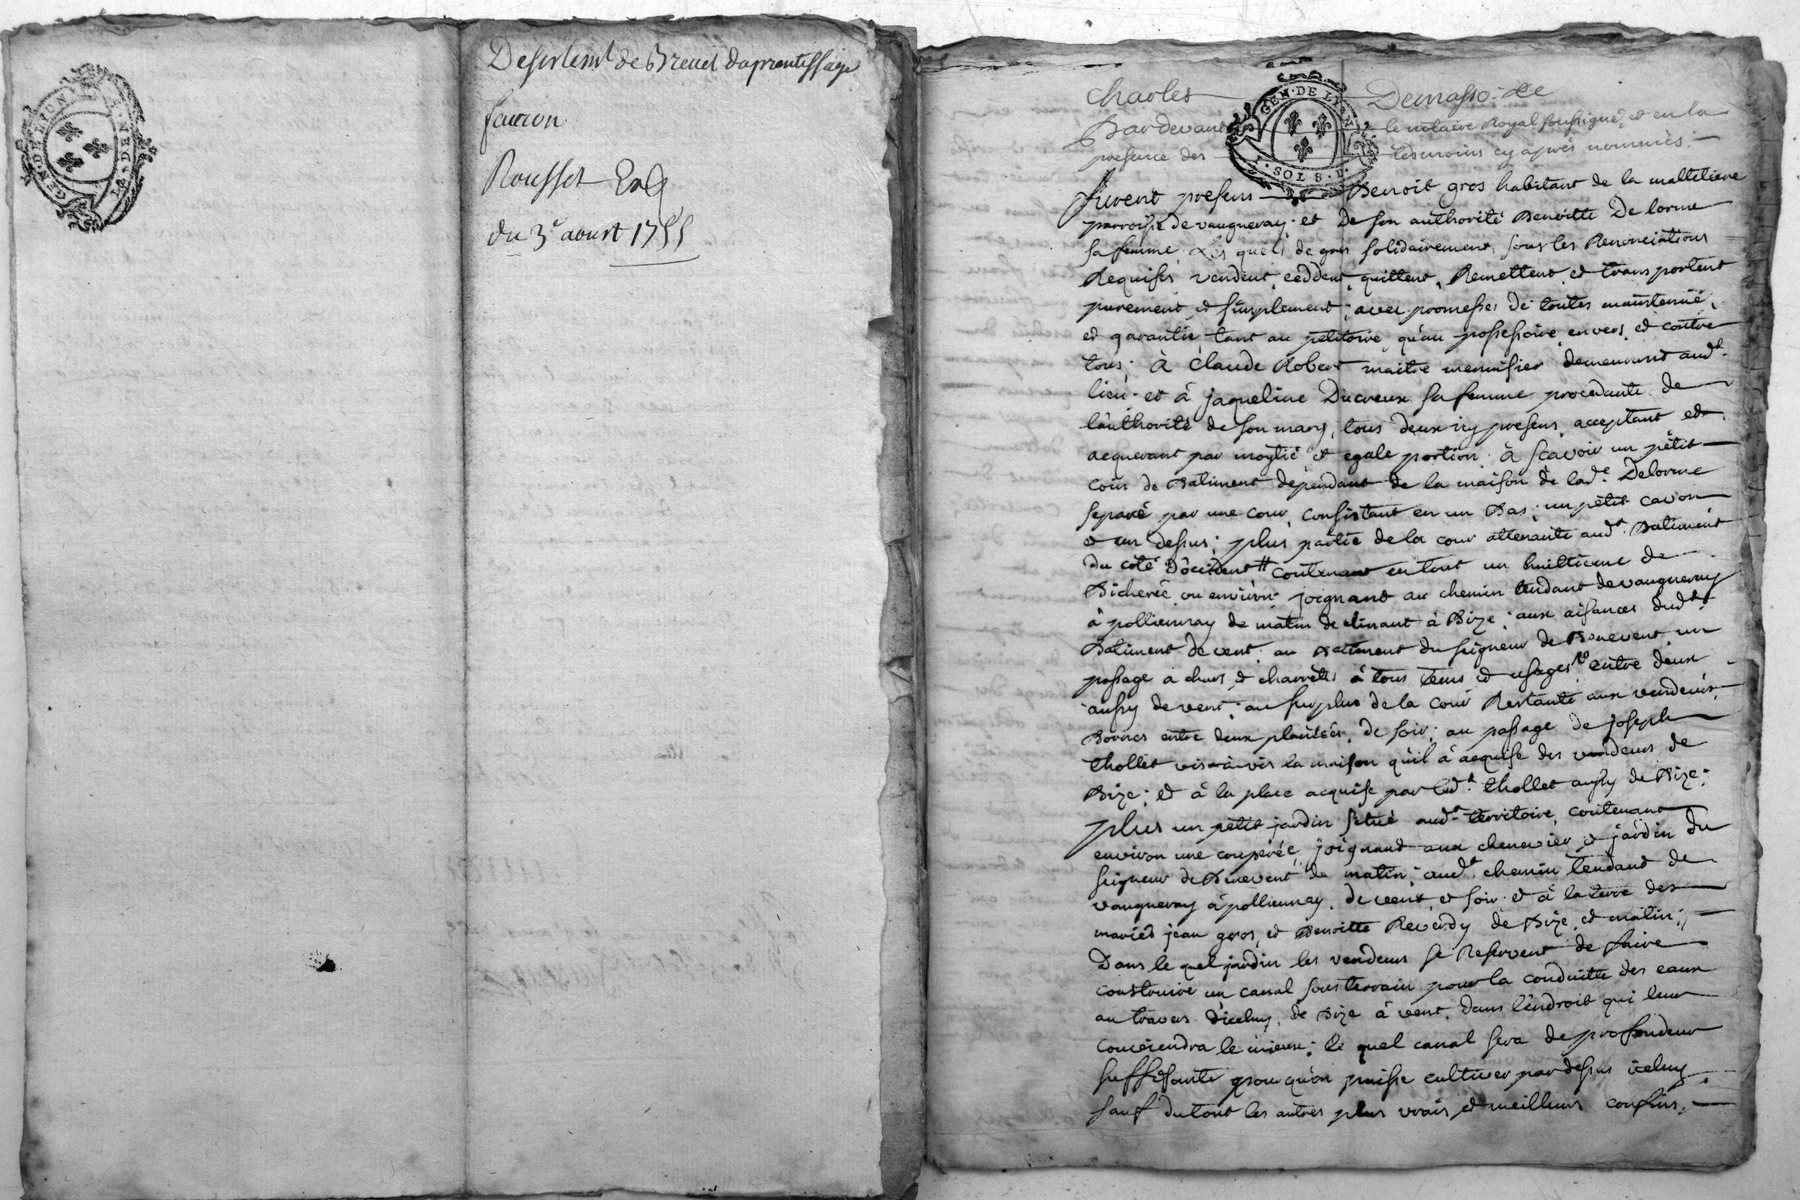 GEN·DE LYON
Desistemt de Brevet daprentissage
faucon
Rousset
du 3e aoust 1755
Charles Demasso: de
GEN·DE LYON
SOLS
Pardevant le notaire Royal soussigné, et en la
presence des tesmoins cy après nommés.
furent presens Benoit gros habitant de la maltetiere
parroisse de vaugneray: et De son authorité Benoitte Delorme
sa femme, Les quels de gré solidairement, sous les Renonciations
Requises vendent, ceddent, quittent, Remettent, et transportent
purement, et simplement; avec promesses de toutes maintenüe,
et garantie, tant au petitoire, qu'au possessoire, envers, et contre
tous; à Claude Robert maitre menuisier demeurant audt.
lieu: et à Jaqueline Ducreux sa femme procedante de
l'authorité de son mary, tous deux icy presens, acceptant et
acquerant par moytié et egale portion; à scavoir un petit
coin de Batiment dépendant de la maison de lade. Delorme
separé par une cour, consistant en un Bas; un petit cavon
et un dessus; plus partie de la cour attenante audt. Batiment
du coté d'ôcident # contenant en tout un huittieme de
Bicherée ou environ: joignant au chemin tendant de vaugneray
à pollionnay de matin declinant à Bize; aux aisances dudt.
Batiment de vent; au Batiment du seigneur de Benevent un
passage à chars, et charrettes à tous tems et usages entre deux
aussy de vent; au surplus de la cour Restante aux vendeurs
Bornes entre deux plantées, de soir; au passage de Joseph
thollet vis-à-vis la maison qu'il à acquise des vendeurs de
Bize; et à la place acquise par ledt. thollet aussy de Bize:
plus un petit jardin situé audt. territoire, contenant
environ une coupérée, joignant aux chenevier, et jardin du
seigneur de Benevent de matin; audt. chemin tendant de
vaugneray à pollionnay, de vent, et soir: et à la terre des
mariés jean gros, et Benoitte Reverdy de Bize, et matin;
Dans le quel jardin les vendeurs se Reservent de faire
construire un canal sousterrain pour la conduitte des eaux
au travers d'iceluy, de Bize à vent, dans l'endroit qui leur
conviendra le mieux; le quel canal sera de profondeur
suffisante pour qu'on puisse cultiver par dessus iceluy,
sauf du tout les autres plus vrais, et meilleurs confins,